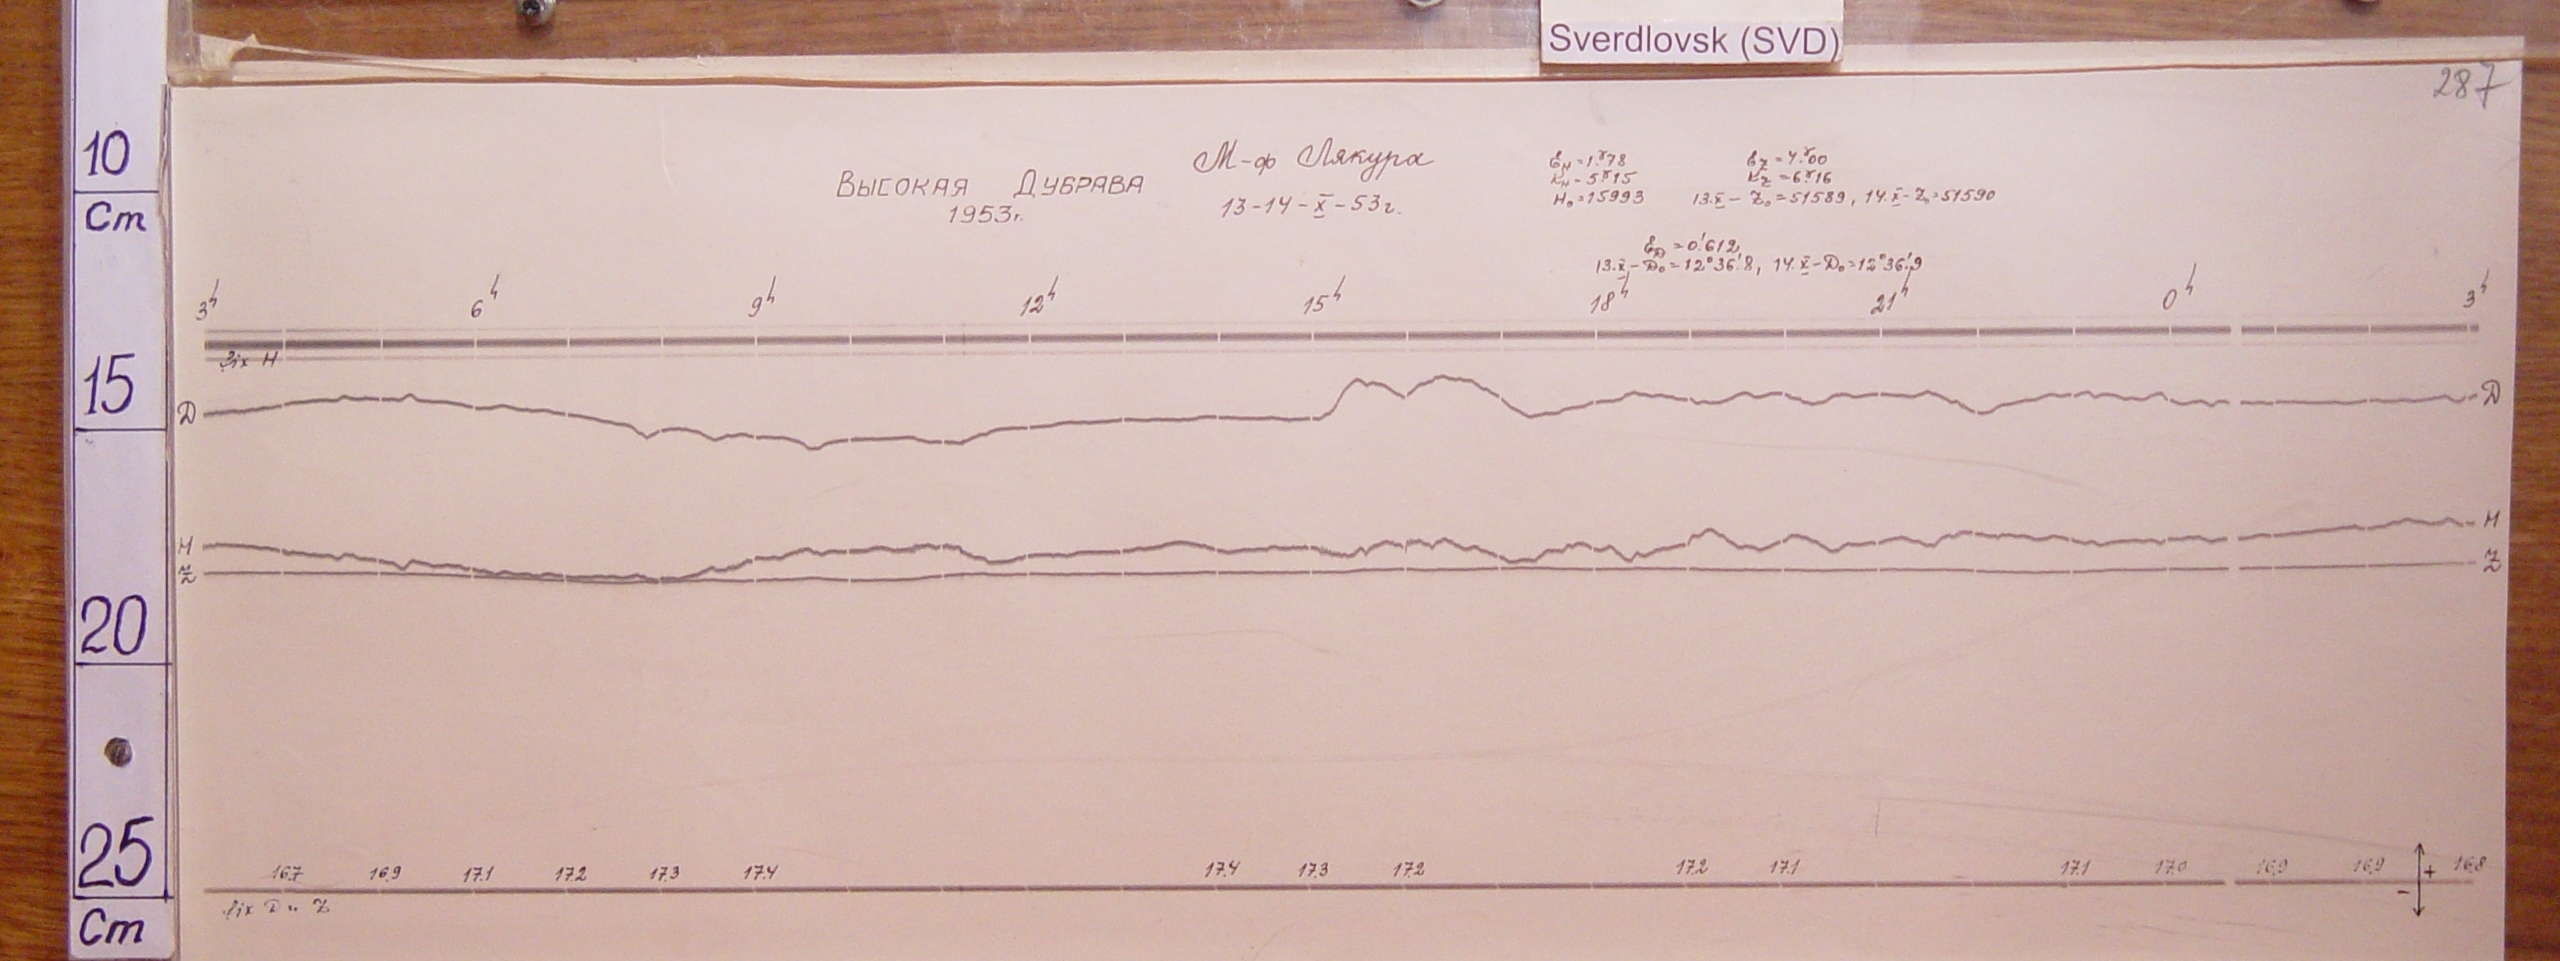 Sverdlovsk (SVD)
287
10
Cm
15
20
25
Cm
Высокая Дубрава
1953г.
М-ф Лякура
13-14-X-53г.
Ɛн = 1.ᵞ78
Kн = 5ᵞ15
H₀ = 15993
Ɛz = 4.ᵞ00
Kz = 6ᵞ16
13.X - Z₀ = 51589, 14.X - Z₀ = 51590
ƐD = 0.'612
13.X - D₀ = 12°36.'8, 14.X - D₀ = 12°36.'9
3ʰ 6ʰ 9ʰ 12ʰ 15ʰ 18ʰ 21ʰ 0ʰ 3ʰ
fix H
D D
H H
Z Z
16.7 16.9 17.1 17.2 17.3 17.4 17.4 17.3 17.2 17.2 17.1 17.1 17.0 16.9 16.9 16.8
+
-
fix D и Z